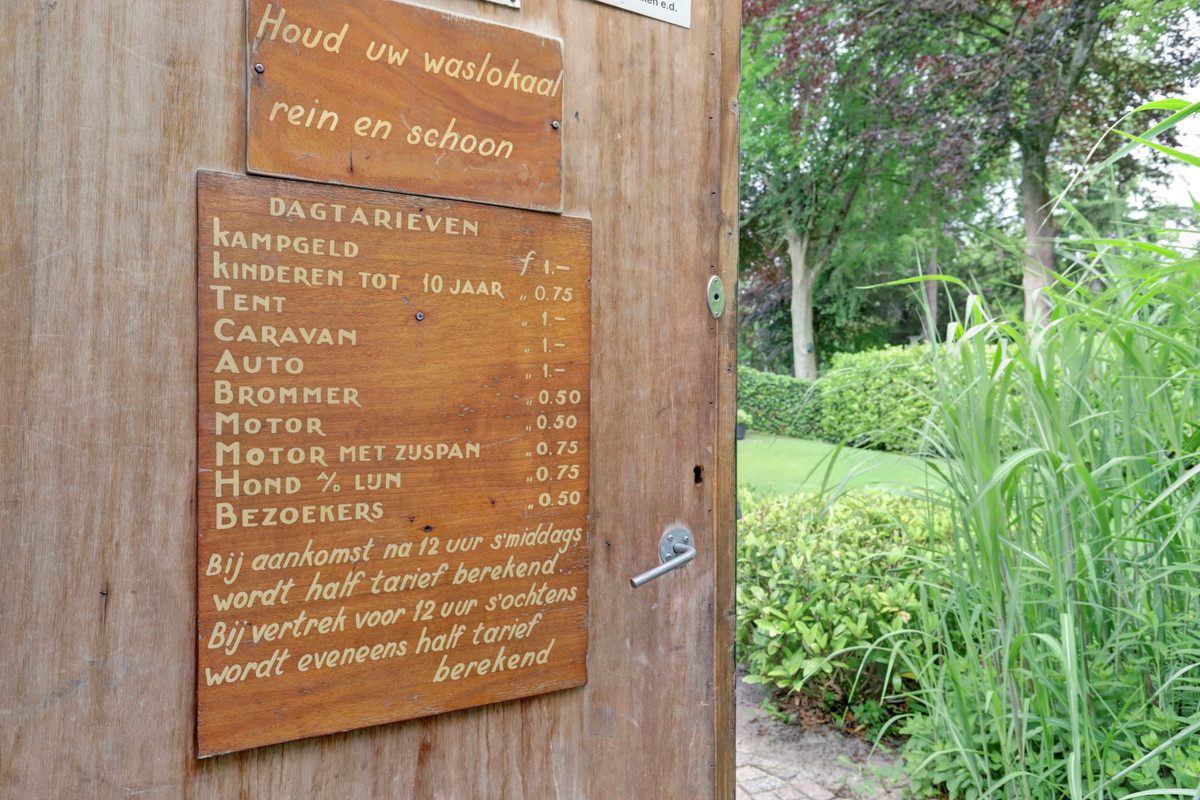 ken e.d.
Houd uw waslokaal
rein en schoon
DAGTARIEVEN
KAMPGELD ƒ 1.–
KINDEREN TOT 10 JAAR „ 0.75
TENT „ 1.–
CARAVAN „ 1.–
AUTO „ 1.–
BROMMER „ 0.50
MOTOR „ 0.50
MOTOR MET ZIJSPAN „ 0.75
HOND A/D LIJN „ 0.75
BEZOEKERS „ 0.50
Bij aankomst na 12 uur s'middags
wordt half tarief berekend
Bij vertrek voor 12 uur s'ochtens
wordt eveneens half tarief
berekend